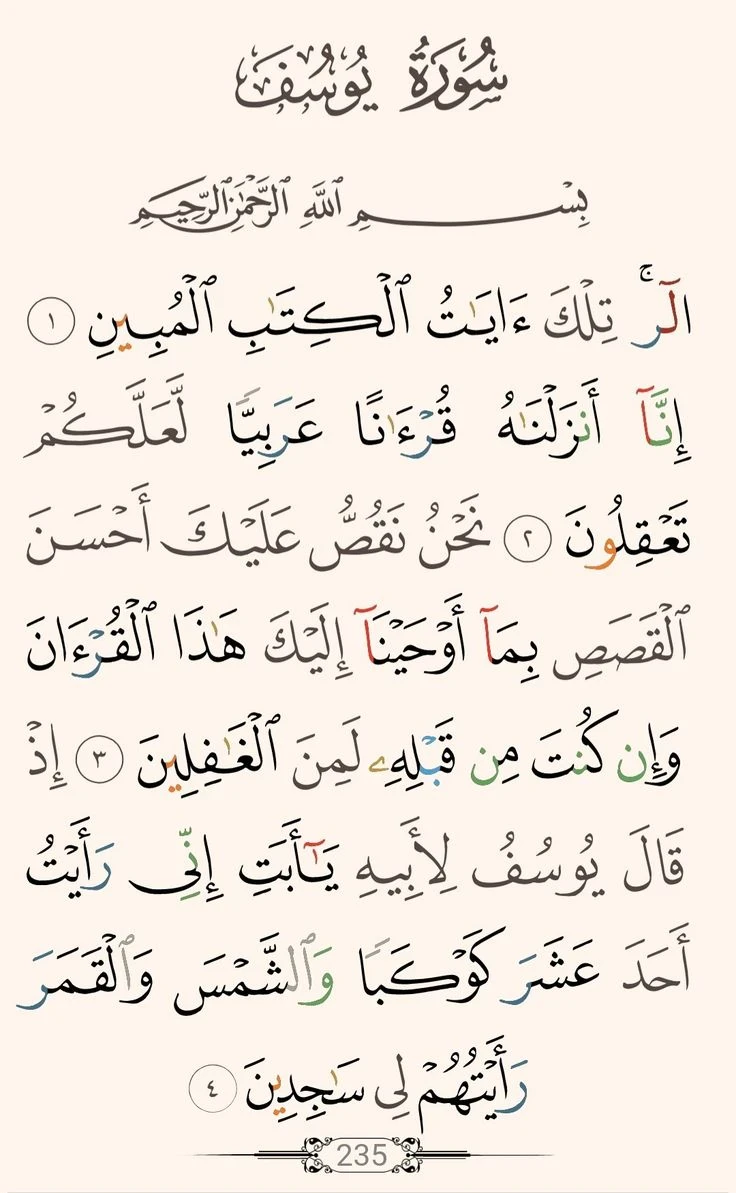 سُورَةُ يُوسُفَ
بِسْمِ ٱللَّهِ ٱلرَّحْمَٰنِ ٱلرَّحِيمِ
الٓرۚ تِلْكَ ءَايَٰتُ ٱلْكِتَٰبِ ٱلْمُبِينِ ١
إِنَّآ أَنزَلْنَٰهُ قُرْءَٰنًا عَرَبِيًّا لَّعَلَّكُمْ
تَعْقِلُونَ ٢ نَحْنُ نَقُصُّ عَلَيْكَ أَحْسَنَ
ٱلْقَصَصِ بِمَآ أَوْحَيْنَآ إِلَيْكَ هَٰذَا ٱلْقُرْءَانَ
وَإِن كُنتَ مِن قَبْلِهِۦ لَمِنَ ٱلْغَٰفِلِينَ ٣ إِذْ
قَالَ يُوسُفُ لِأَبِيهِ يَٰٓأَبَتِ إِنِّى رَأَيْتُ
أَحَدَ عَشَرَ كَوْكَبًا وَٱلشَّمْسَ وَٱلْقَمَرَ
رَأَيْتُهُمْ لِى سَٰجِدِينَ ٤
235